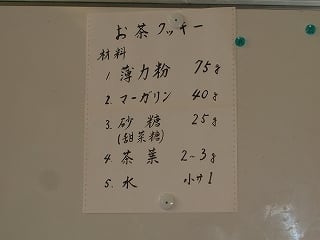 お茶クッキー
材料
1. 薄力粉 75g
2. マーガリン 40g
3. 砂糖 25g
(甜菜糖)
4. 茶葉 2~3g
5. 水 小サ1